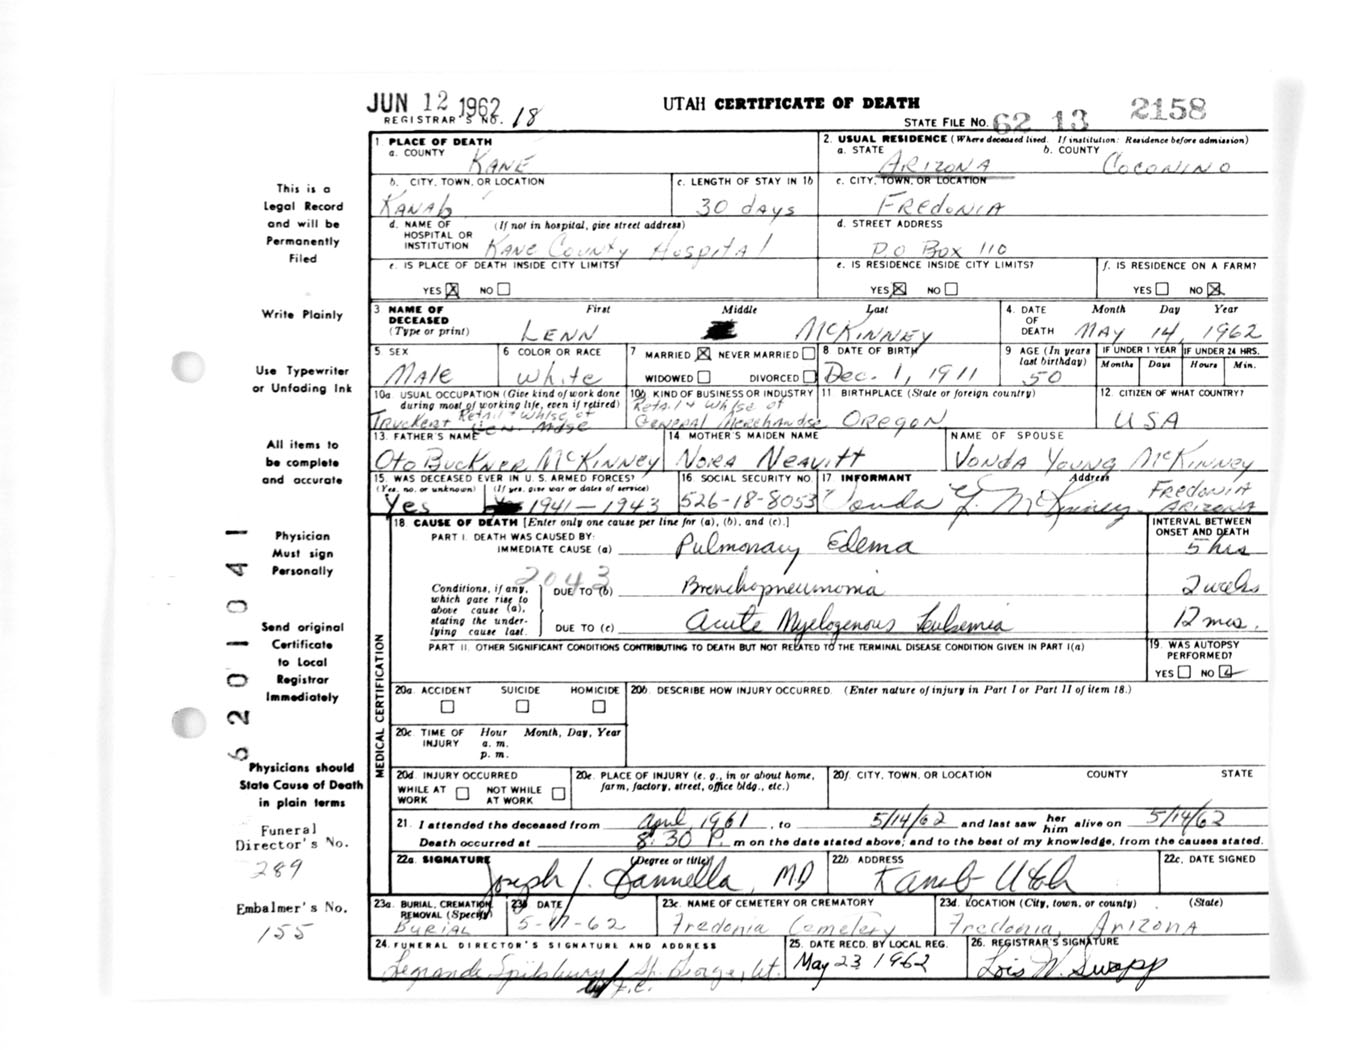 JUN 12 1962
UTAH CERTIFICATE OF DEATH
REGISTRAR'S NO. 18
STATE FILE NO. 62 13 2158
1. PLACE OF DEATH
a. COUNTY KANE
2. USUAL RESIDENCE (Where deceased lived. If institution: Residence before admission)
a. STATE ARIZONA b. COUNTY COCONINO
b. CITY, TOWN, OR LOCATION KANAb
c. LENGTH OF STAY IN 1b 30 days
c. CITY, TOWN, OR LOCATION FREDONIA
d. NAME OF HOSPITAL OR INSTITUTION (If not in hospital, give street address) KANE COUNTY HOSPITAL
d. STREET ADDRESS P.O Box 110
e. IS PLACE OF DEATH INSIDE CITY LIMITS?
YES ☒ NO ☐
e. IS RESIDENCE INSIDE CITY LIMITS?
YES ☒ NO ☐
f. IS RESIDENCE ON A FARM?
YES ☐ NO ☒
3. NAME OF DECEASED (Type or print) First Middle Last
LENN McKINNEY
4. DATE OF DEATH Month Day Year
MAY 14, 1962
5 SEX MALE
6 COLOR OR RACE White
7 MARRIED ☒ NEVER MARRIED ☐
WIDOWED ☐ DIVORCED ☐
8 DATE OF BIRTH Dec. 1, 1911
9 AGE (In years last birthday) 50
IF UNDER 1 YEAR Months Days
IF UNDER 24 HRS. Hours Min.
10a. USUAL OCCUPATION (Give kind of work done during most of working life, even if retired)
Retail + Whlse of Gen. Mdse
10b. KIND OF BUSINESS OR INDUSTRY
Retail + Whlse of GENERAL Merchandse
11 BIRTHPLACE (State or foreign country) OREGON
12. CITIZEN OF WHAT COUNTRY? USA
13. FATHER'S NAME OTO BUCKNER McKINNEY
14 MOTHER'S MAIDEN NAME NORA NEAVITT
NAME OF SPOUSE VONDA YOUNG McKINNEY
15. WAS DECEASED EVER IN U.S. ARMED FORCES?
(Yes, no, or unknown) (If yes, give war or dates of service)
Yes 1941-1943
16 SOCIAL SECURITY NO. 526-18-8053
17 INFORMANT Address
Vonda Y. McKinney FREDONIA ARIZONA
18. CAUSE OF DEATH [Enter only one cause per line for (a), (b), and (c).]
INTERVAL BETWEEN ONSET AND DEATH
PART I. DEATH WAS CAUSED BY:
IMMEDIATE CAUSE (a) Pulmonary Edema 5 hrs
2043
Conditions, if any, which gave rise to above cause (a), stating the underlying cause last.
DUE TO (b) Bronchopneumonia 2 weeks
DUE TO (c) Acute Myelogenous Leukemia 12 mos.
PART II. OTHER SIGNIFICANT CONDITIONS CONTRIBUTING TO DEATH BUT NOT RELATED TO THE TERMINAL DISEASE CONDITION GIVEN IN PART I(a)
19. WAS AUTOPSY PERFORMED?
YES ☐ NO ☑
MEDICAL CERTIFICATION
20a. ACCIDENT SUICIDE HOMICIDE
☐ ☐ ☐
20b. DESCRIBE HOW INJURY OCCURRED. (Enter nature of injury in Part I or Part II of item 18.)
20c. TIME OF INJURY Hour a. m. p. m. Month, Day, Year
20d. INJURY OCCURRED
WHILE AT WORK ☐ NOT WHILE AT WORK ☐
20e. PLACE OF INJURY (e. g., in or about home, farm, factory, street, office bldg., etc.)
20f. CITY, TOWN, OR LOCATION COUNTY STATE
21. I attended the deceased from April 1961, to 5/14/62 and last saw her him alive on 5/14/62
Death occurred at 8:30 P. m on the date stated above; and to the best of my knowledge, from the causes stated.
22a. SIGNATURE (Degree or title) Joseph J. Cannella, MD
22b. ADDRESS Kanab Utah
22c. DATE SIGNED
23a. BURIAL, CREMATION, REMOVAL (Specify) BURIAL
23b DATE 5-17-62
23c. NAME OF CEMETERY OR CREMATORY Fredonia Cemetery
23d. LOCATION (City, town, or county) (State) Fredonia, ARIZONA
24. FUNERAL DIRECTOR'S SIGNATURE AND ADDRESS
Legrande Spilsbury / St. George, Ut.
25. DATE RECD. BY LOCAL REG. May 23 1962
26. REGISTRAR'S SIGNATURE Lois W. Swapp
This is a
Legal Record
and will be
Permanently
Filed
Write Plainly
Use Typewriter
or Unfading Ink
All items to
be complete
and accurate
Physician
Must sign
Personally
Send original
Certificate
to Local
Registrar
Immediately
Physicians should
State Cause of Death
in plain terms
Funeral
Director's No.
289
Embalmer's No.
155
6201041